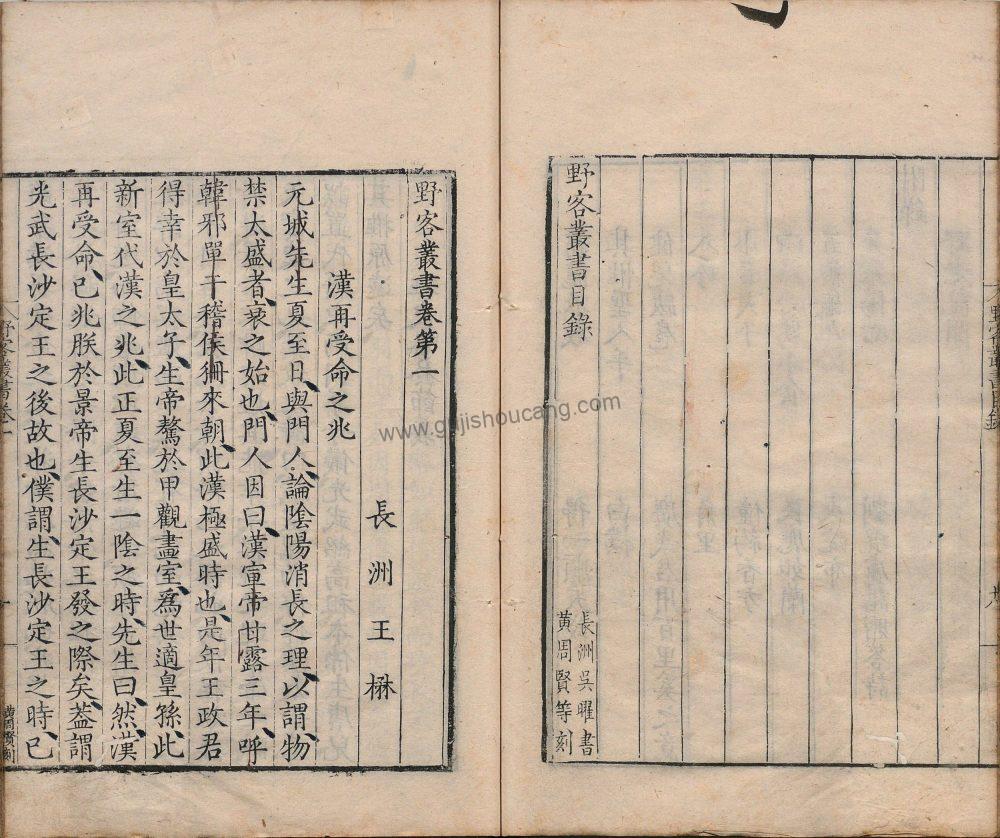 野客叢書目錄
長洲吳曜書
黃周賢等刻
野客叢書卷第一
長洲王楙
漢再受命之兆
元城先生夏至日與門人論陰陽消長之理以謂物
禁太盛者衰之始也門人因曰漢宣帝甘露三年呼
韓邪單于稽侯狦來朝此漢極盛時也是年王政君
得幸於皇太子生帝驁於甲觀畫室為世適皇孫此
新室代漢之兆此正夏至生一陰之時先生曰然漢
再受命已兆朕於景帝生長沙定王發之際矣蓋謂
光武長沙定王之後故也僕謂生長沙定王之時已
野客叢書卷一
黃周賢刻
www.gujishoucang.com